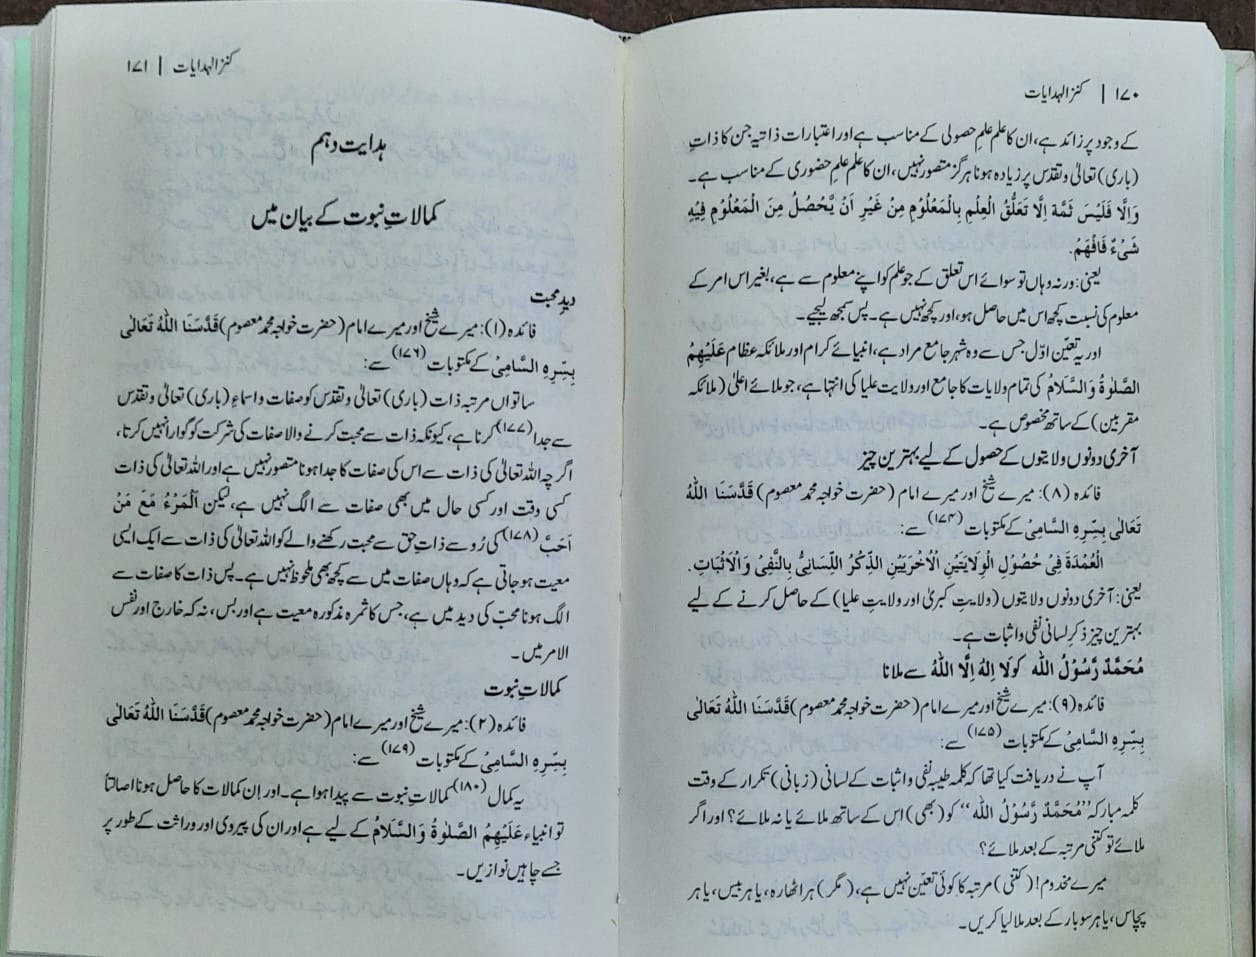 ۱۷۰ | کنز الہدایات
کے وجود پر زائد ہے، ان کا علم علمِ حصولی کے مناسب ہے اور اعتبارات ذاتیہ جن کا ذاتِ
(باری) تعالیٰ وتقدس پر زیادہ ہونا ہرگز متصور نہیں، ان کا علم علمِ حضوری کے مناسب ہے۔
وَاِلَّا فَلَیْسَ ثَمَّۃَ اِلَّا تَعَلُّقُ الْعِلْمِ بِالْمَعْلُوْمِ مِنْ غَیْرِ اَنْ یَّحْصُلَ مِنَ الْمَعْلُوْمِ فِیْہِ
شَیْءٌ فَافْهَمْ.
یعنی: ورنہ وہاں تو سوائے اس تعلق کے جو علم کو اپنے معلوم سے ہے، بغیر اس امر کے
معلوم کی نسبت کچھ اس میں حاصل ہو، اور کچھ نہیں ہے۔ پس سمجھ لیجیے۔
اور یہ تعیّن اوّل جس سے وہ شہر جامع مراد ہے، انبیائے کرام اور ملائکہ عظام عَلَیْہِمُ
الصَّلٰوۃُ وَالسَّلَامُ کی تمام ولایات کا جامع اور ولایت علیا کی انتہا ہے، جو ملائے اعلیٰ (ملائکہ
مقربین) کے ساتھ مخصوص ہے۔
آخری دونوں ولایتوں کے حصول کے لیے بہترین چیز
فائدہ (۸): میرے شیخ اور میرے امام (حضرت خواجہ محمد معصوم) قَدَّسَنَا اللّٰہُ
تَعَالٰی بِسِرِّہِ السَّامِیْ کے مکتوبات (۱۷۴) سے:
اَلْعُمْدَۃَ فِیْ حُصُوْلِ الْوِلَایَتَیْنِ الْاُخْرَیَیْنِ الذِّکْرُ اللِّسَانِیُّ بِالنَّفْیِ وَالْاَثْبَاتِ.
یعنی: آخری دونوں ولایتوں (ولایتِ کبریٰ اور ولایتِ علیا) کے حاصل کرنے کے لیے
بہترین چیز ذکرِ لسانی نفی و اثبات ہے۔
مُحَمَّدٌ رَّسُوْلُ اللّٰہ کو لَا اِلٰہَ اِلَّا اللّٰہُ سے ملانا
فائدہ (۹): میرے شیخ اور میرے امام (حضرت خواجہ محمد معصوم) قَدَّسَنَا اللّٰہُ تَعَالٰی
بِسِرِّہِ السَّامِیْ کے مکتوبات (۱۷۵) سے:
آپ نے دریافت کیا تھا کہ کلمہ طیبہ نفی و اثبات کے لسانی (زبانی) تکرار کے وقت
کلمہ مبارکہ ’’مُحَمَّدٌ رَّسُوْلُ اللّٰہ‘‘ کو (بھی) اس کے ساتھ ملائے یا نہ ملائے؟ اور اگر
ملائے تو کتنی مرتبہ کے بعد ملائے؟
میرے مخدوم! (کتنی) مرتبہ کا کوئی تعیّن نہیں ہے، (مگر) ہر اٹھارہ، یا ہر بیس، یا ہر
پچاس، یا ہر سو بار کے بعد ملا لیا کریں۔
کنز الہدایات | ۱۷۱
ہدایت دہم
کمالاتِ نبوت کے بیان میں
دیدِ محبت
فائدہ (۱): میرے شیخ اور میرے امام (حضرت خواجہ محمد معصوم) قَدَّسَنَا اللّٰہُ تَعَالٰی
بِسِرِّہِ السَّامِیْ کے مکتوبات (۱۷۶) سے:
ساتواں مرتبہ ذات (باری) تعالیٰ وتقدّس کو صفات و اسماءِ (باری) تعالیٰ وتقدّس
سے جدا (۱۷۷) کرنا ہے، کیونکہ ذات سے محبت کرنے والا صفات کی شرکت کو گوارا نہیں کرتا،
اگرچہ اللہ تعالیٰ کی ذات سے اس کی صفات کا جدا ہونا متصور نہیں ہے اور اللہ تعالیٰ کی ذات
کسی وقت اور کسی حال میں بھی صفات سے الگ نہیں ہے، لیکن اَلْمَرْءُ مَعَ مَنْ
اَحَبَّ (۱۷۸) کی رُو سے ذاتِ حق سے محبت رکھنے والے کو اللہ تعالیٰ کی ذات سے ایک ایسی
معیت ہو جاتی ہے کہ وہاں صفات میں سے کچھ بھی ملحوظ نہیں ہے۔ پس ذات کا صفات سے
الگ ہونا محبّ کی دید میں ہے، جس کا ثمرہ مذکورہ معیت ہے اور بس، نہ کہ خارج اور نفس
الامر میں۔
کمالاتِ نبوت
فائدہ (۲): میرے شیخ اور میرے امام (حضرت خواجہ محمد معصوم) قَدَّسَنَا اللّٰہُ تَعَالٰی
بِسِرِّہِ السَّامِیْ کے مکتوبات (۱۷۹) سے:
یہ کمال (۱۸۰) کمالات نبوت سے پیدا ہوا ہے۔ اور اِن کمالات کا حاصل ہونا اصالتاً
تو انبیاء عَلَیْہِمُ الصَّلٰوۃُ وَالسَّلَامُ کے لیے ہے اور ان کی پیروی اور وراثت کے طور پر
جسے چاہیں نوازیں۔